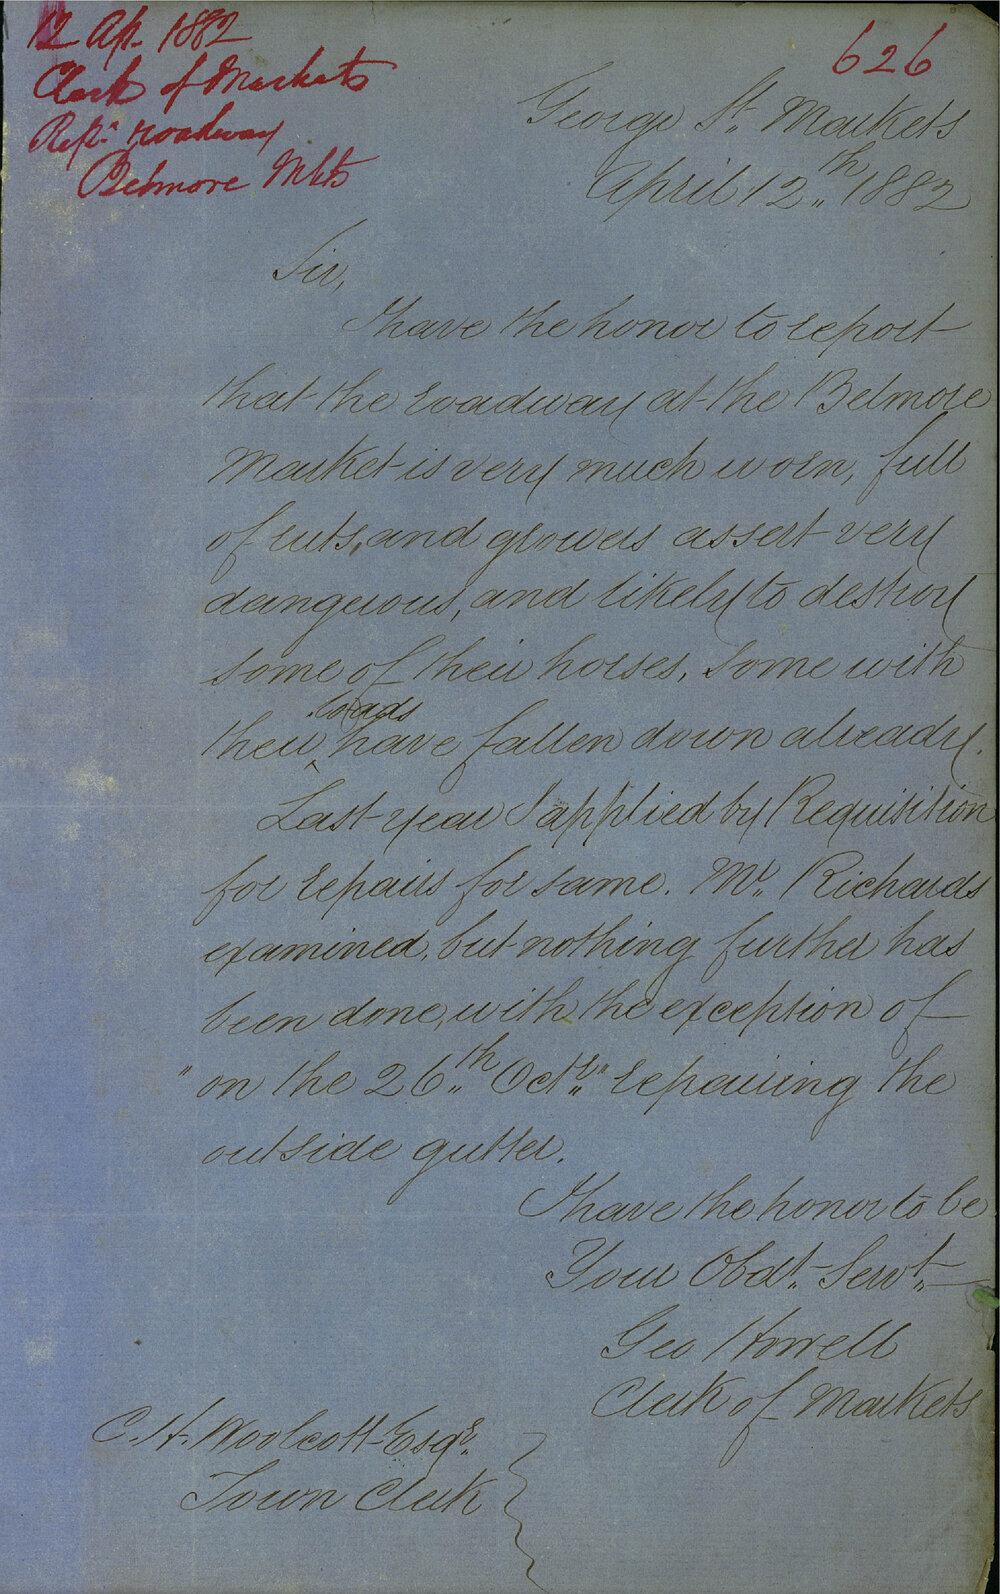 12 Ap. 1882
Clerk of Markets
Rep.n roadway
Belmore Mkts
626
George St. Markets
April 12th 1882
Sir,
I have the honor to report
that the roadway at the Belmore
Market is very much worn, full
of ruts, and growers assert very
dangerous, and likely to destroy
some of their horses, some with
loads
their ^ have fallen down already.
Last year I applied by Requisition
for repairs for same. Mr. Richards
examined, but nothing further has
been done, with the exception of
" on the 26th Octr." repairing the
outside gutter.
I have the honor to be
Your Obdt. Servt.
Geo Howell
Clerk of Markets
C. H. Woolcott Esqr.
Town Clerk